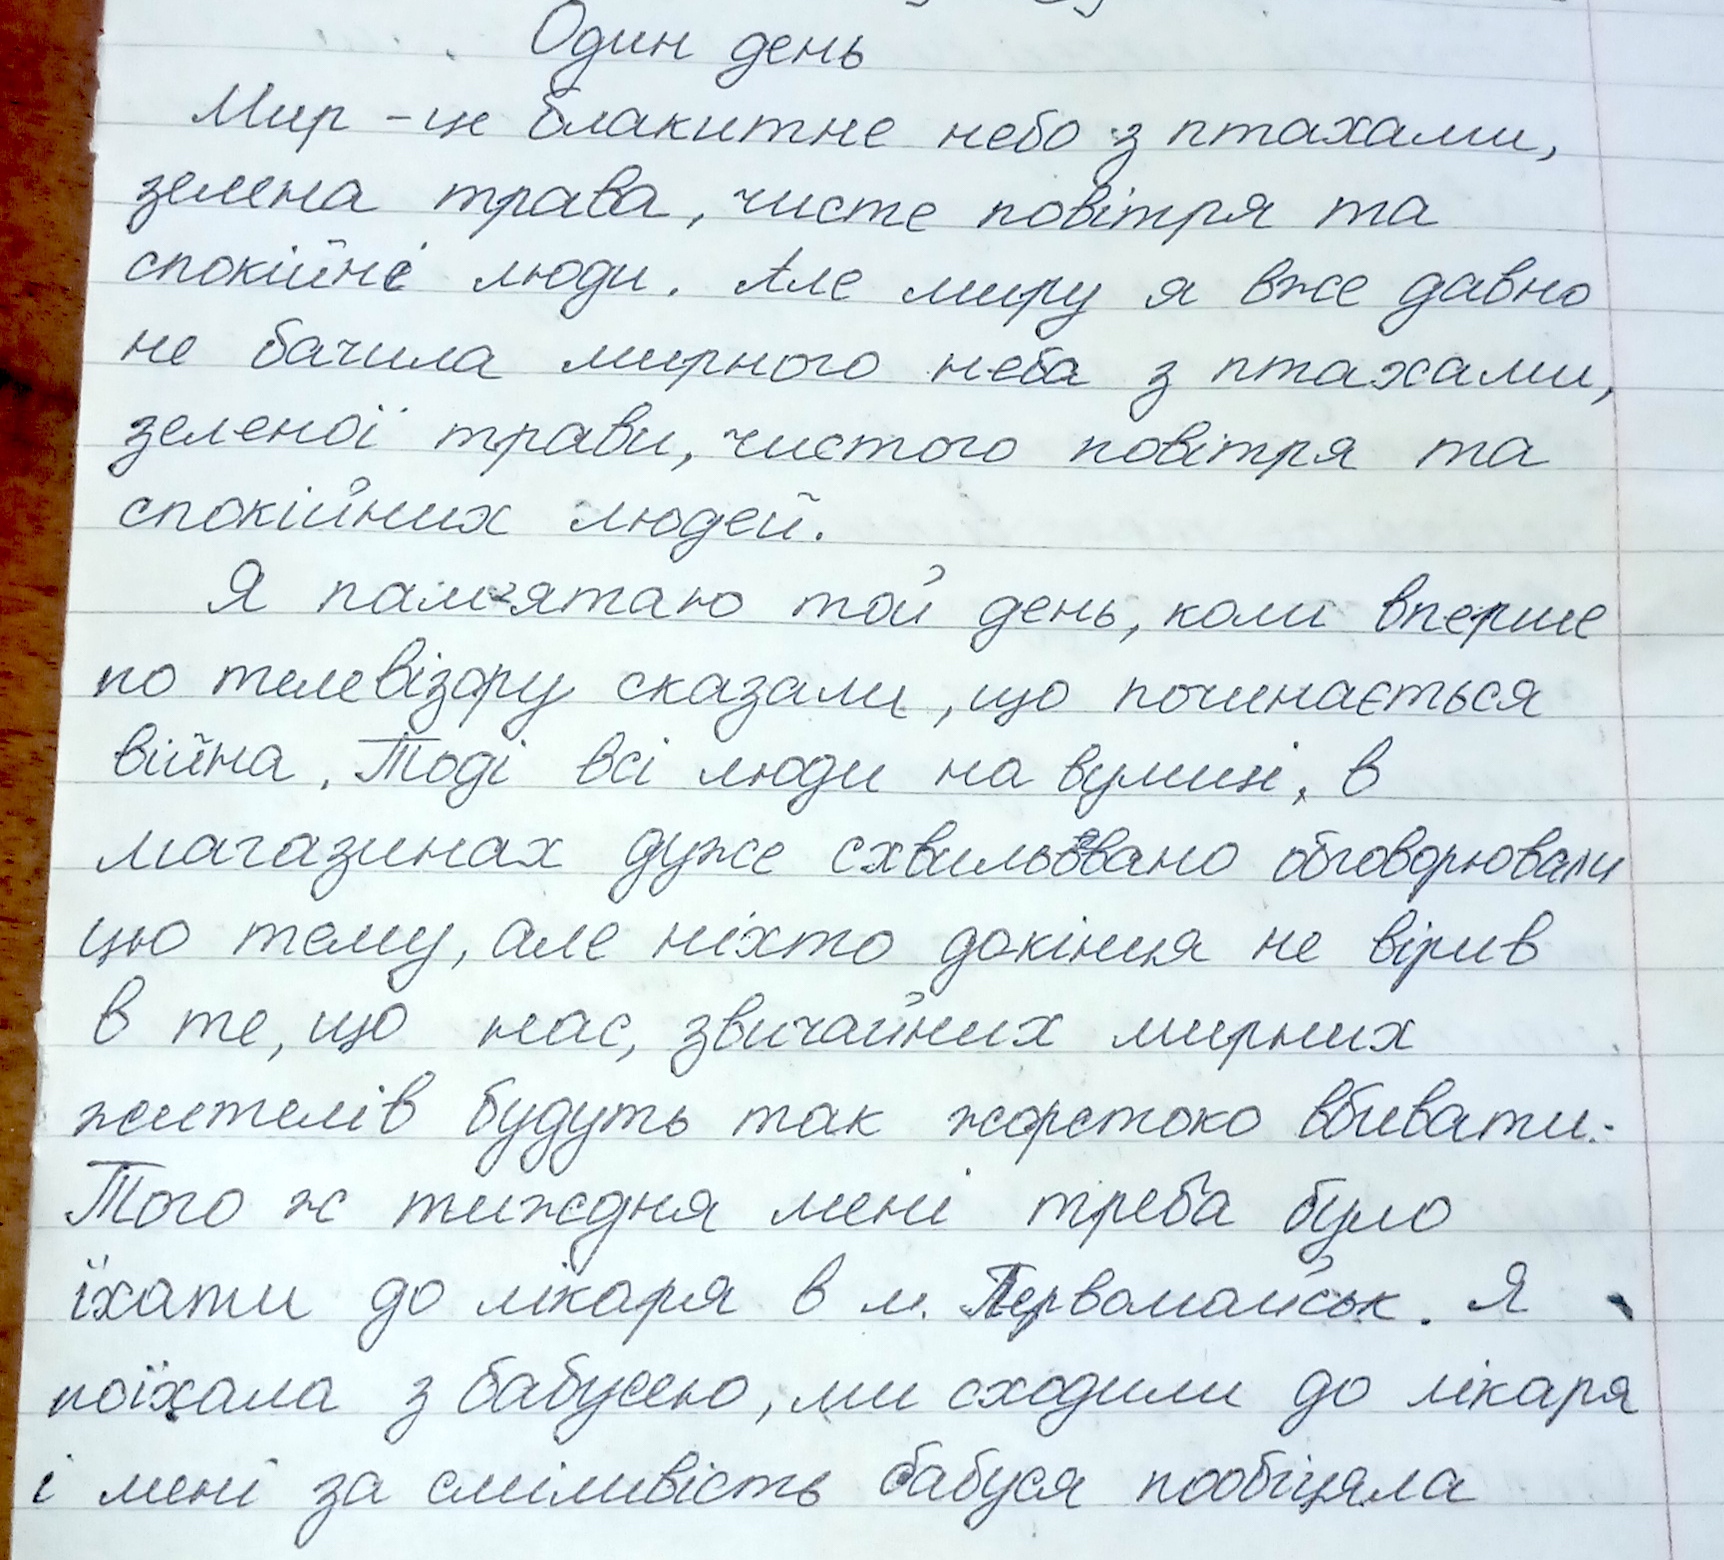 Один день
Мир - це блакитне небо з птахами,
зелена трава, чисте повітря та
спокійні люди. Але миру я вже давно
не бачила мирного неба з птахами,
зеленої трави, чистого повітря та
спокійних людей.
Я пам'ятаю той день, коли вперше
по телевізору сказали, що починається
війна. Тоді всі люди на вулиці, в
магазинах дуже схвильовано обговорювали
цю тему, але ніхто докінця не вірив
в те, що нас, звичайних мирних
жителів будуть так жорстоко вбивати.
Того ж тиждня мені треба було
їхати до лікаря в м. Первомайськ. Я
поїхала з бабусею, ми сходили до лікаря
і мені за сміливість бабуся пообіцяла